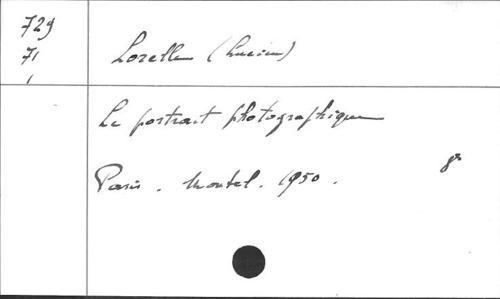 729
71
1
Lorelle (Lucien)
Le portrait photographique
Paris. Montel. 1950. 8º